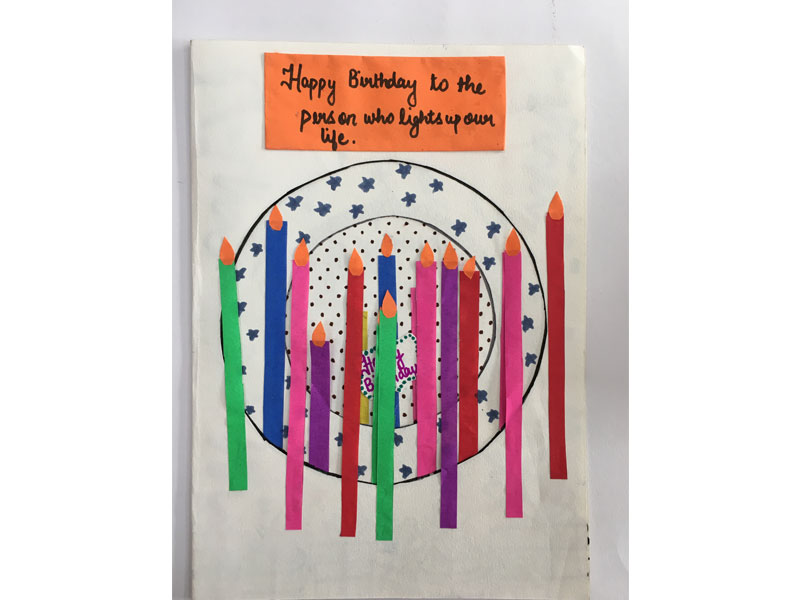 Happy Birthday to the
person who lights up our
life.
Happy
Birthday